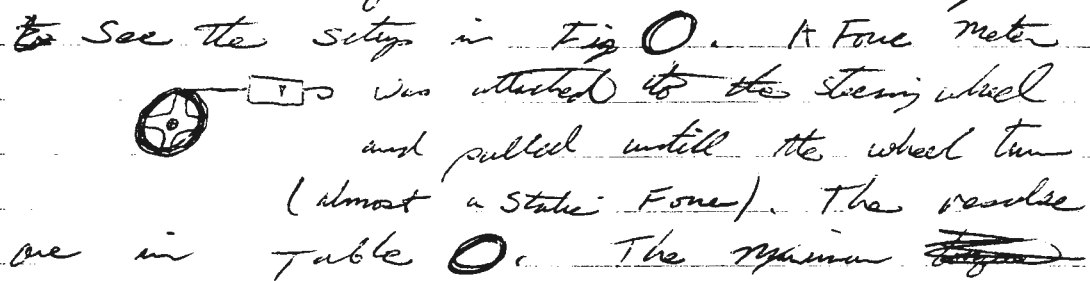 to See the setup in Fig O. A Force Meter
was attached to the steering wheel
and pulled untill the wheel turn
(almost a static Force). The results
are in Table O. The Maximum